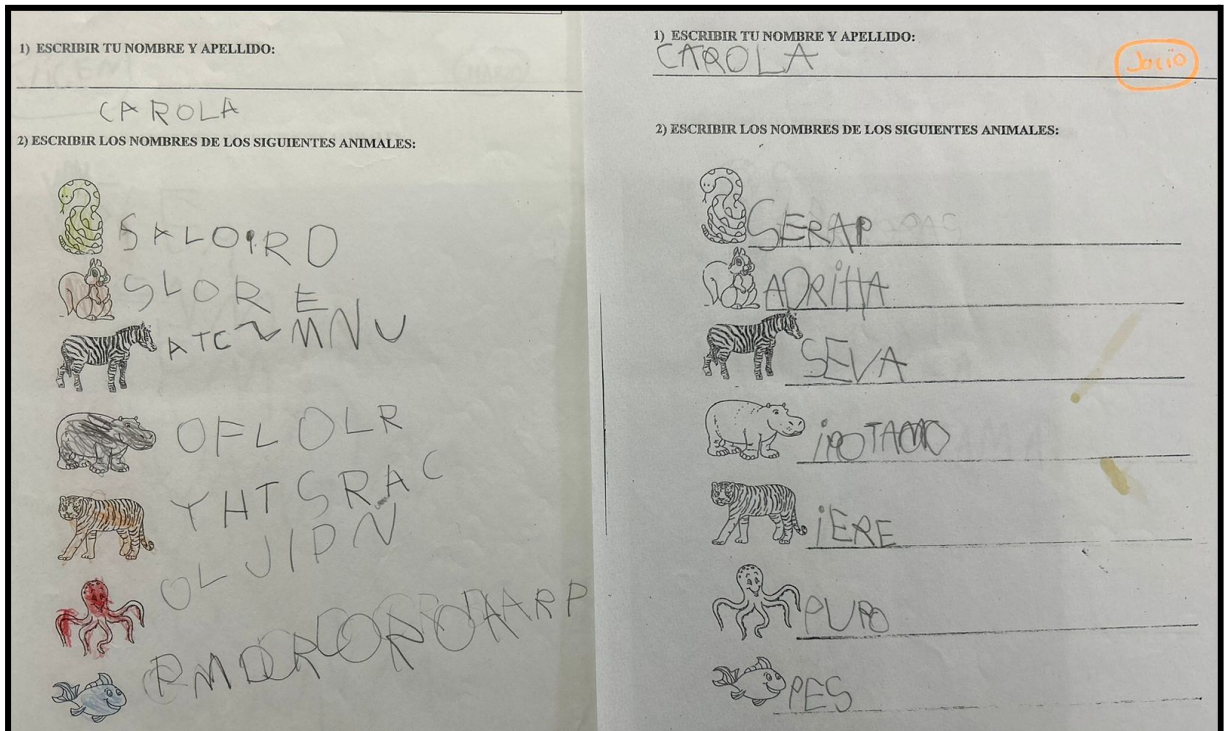 1) ESCRIBIR TU NOMBRE Y APELLIDO:
CAROLA
2) ESCRIBIR LOS NOMBRES DE LOS SIGUIENTES ANIMALES:
SALOIRO
SLORE
ATCZMNU
OFLOLR
YHTSRAC
OLJIPN
1) ESCRIBIR TU NOMBRE Y APELLIDO:
CAROLA
2) ESCRIBIR LOS NOMBRES DE LOS SIGUIENTES ANIMALES:
SERAP
ADRiHA
SEVA
iPOTAMO
iERE
PUPO
PES